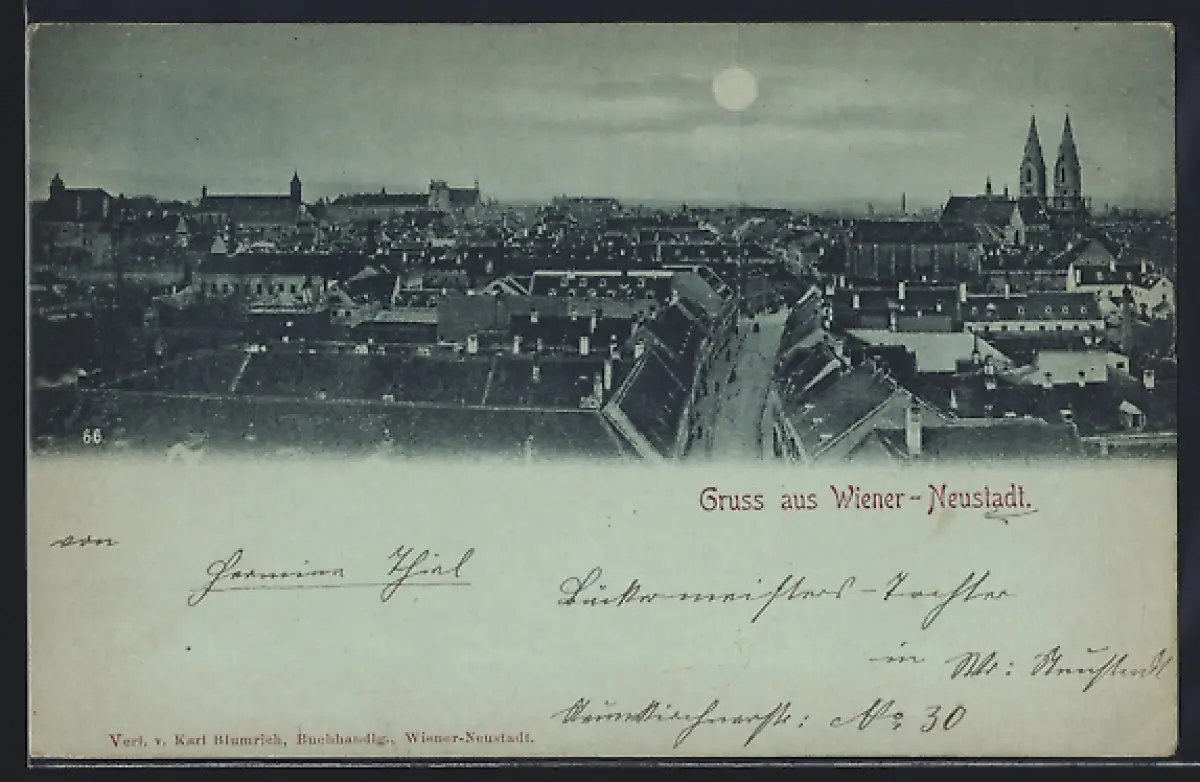 66
Gruss aus Wiener-Neustadt.
von
Hermine Thiel
Bäckermeisters-Tochter
in Wr: Neustadt
Neunkirchnerstr: No 30
Verl. v. Karl Blumrich, Buchhandlg., Wiener-Neustadt.